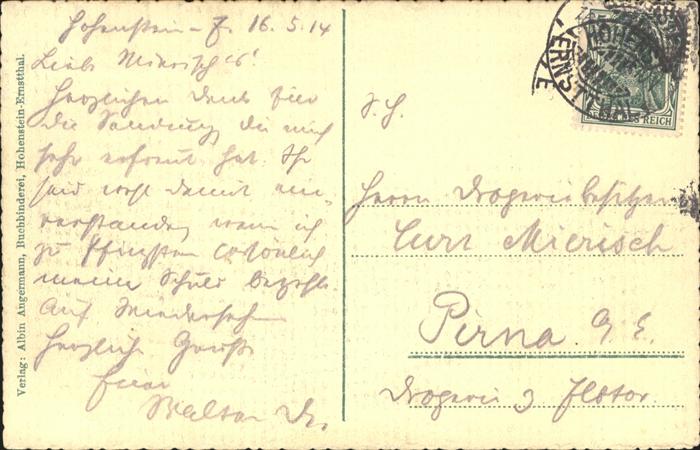 Hohenstein-E. 16.5.14
Liebe Mierisch's!
Herzlichen Dank für
die Sendung, die mich
sehr erfreut hat. Ihr
seid wohl damit ein-
verstanden, wenn ich
zu Pfingsten persönlich
meine Schuld bezahle.
Auf Wiedersehn
Herzliche Grüße
Euer
Walter
Verlag: Albin Angermann, Buchbinderei, Hohenstein-Ernstthal.
HOHENSTEIN
ERNSTTHAL
DEUTSCHES REICH
S. H.
Herrn Drogeriebesitzer
Curt Mierisch
Pirna a. E.
Drogerie z.